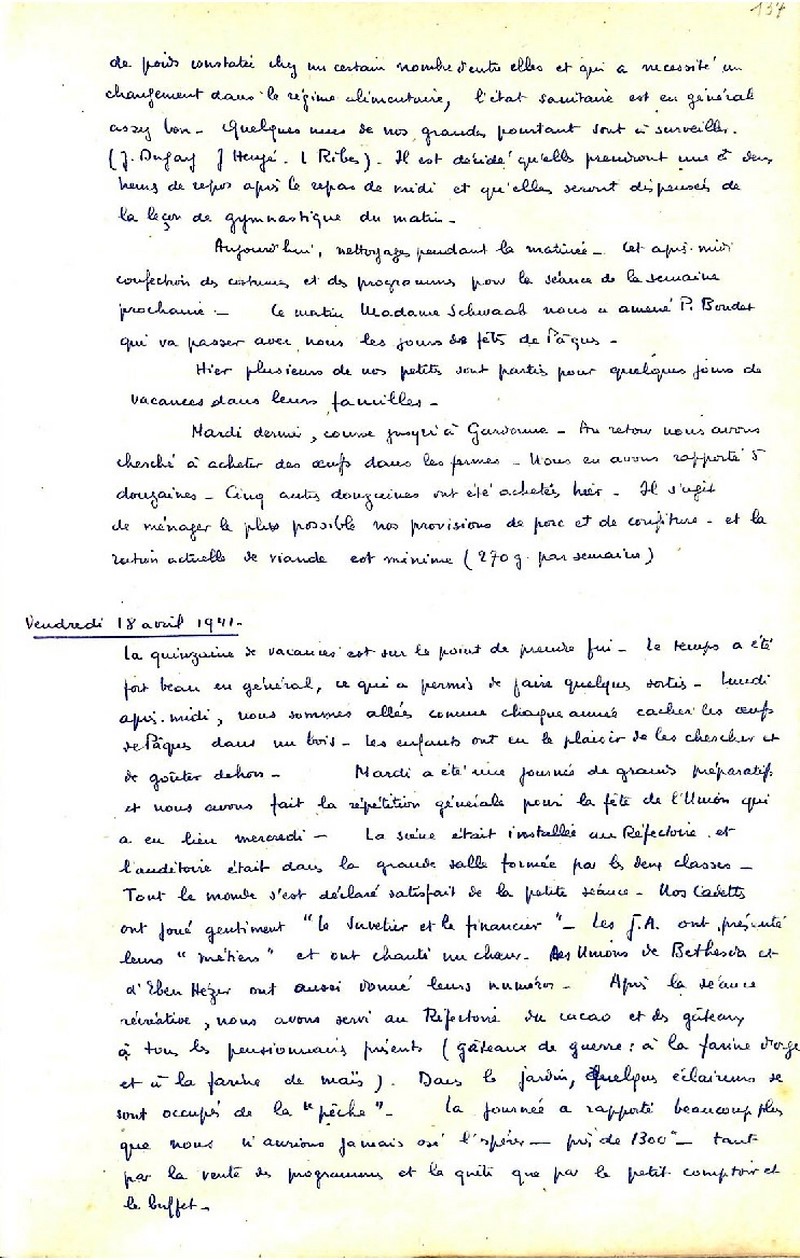 137
de poids constatée chez un certain nombre d'entre elles et qui a nécessité un
changement dans le régime alimentaire, l'état sanitaire est en général
assez bon - Quelques unes de nos grandes pourtant sont à surveiller.
(J. Dugay J Hengé. L Ribes). Il est décidé qu'elles prendront une à deux
heures de repos après le repas de midi et qu'elles seront dispensées de
la leçon de gymnastique du matin -
Aujourd'hui, nettoyages pendant la matinée - Cet après-midi
confection des costumes et des programmes pour la séance de la semaine
prochaine - Ce matin Madame Schwaab nous a amené P. Boudet
qui va passer avec nous les jours de fêtes de Pâques -
Hier plusieurs de nos petites sont parties pour quelques jours de
vacances dans leurs familles -
Mardi dernier, course jusqu'à Gardonne - Au retour nous avons
cherché à acheter des œufs dans les fermes - Nous en avons rapporté 5
douzaines - Cinq autres douzaines ont été achetées hier - Il s'agit
de ménager le plus possible nos provisions de porc et de confiture - et la
ration actuelle de viande est minime (270 g. par semaine)
Vendredi 18 avril 1941-
La quinzaine de vacances est sur le point de prendre fin - Le temps a été
fort beau en général, ce qui a permis de faire quelques sorties - Lundi
après-midi, nous sommes allées comme chaque année cacher les œufs
de Pâques dans un bois - Les enfants ont eu le plaisir de les chercher et
de goûter dehors - Mardi a été une journée de grands préparatifs
et nous avons fait la répétition générale pour la fête de l'Union qui
a eu lieu mercredi - La scène était installée au Réfectoire et
l'auditoire était dans la grande salle formée par les deux classes -
Tout le monde s'est déclaré satisfait de la petite séance - Nos Cadettes
ont joué gentiment "le Savetier et le financier" - Les J.A. ont présenté
leurs "métiers" et ont chanté un chœur - Les Unions de Bethesda et
d'Eben Hezer ont aussi donné leurs numéros - Après la séance
récréative, nous avons servi au Réfectoire du cacao et des gâteaux
à tous les pensionnaires présents (gâteaux de guerre : à la farine d'orge
et à la farine de maïs). Dans le jardin, quelques éclaireurs se
sont occupés de la "pêche" - La journée a rapporté beaucoup plus
que nous n'aurions jamais osé l'espérer - près de 1300 - tant
par la vente des programmes et la quête que par le petit comptoir et
le buffet -